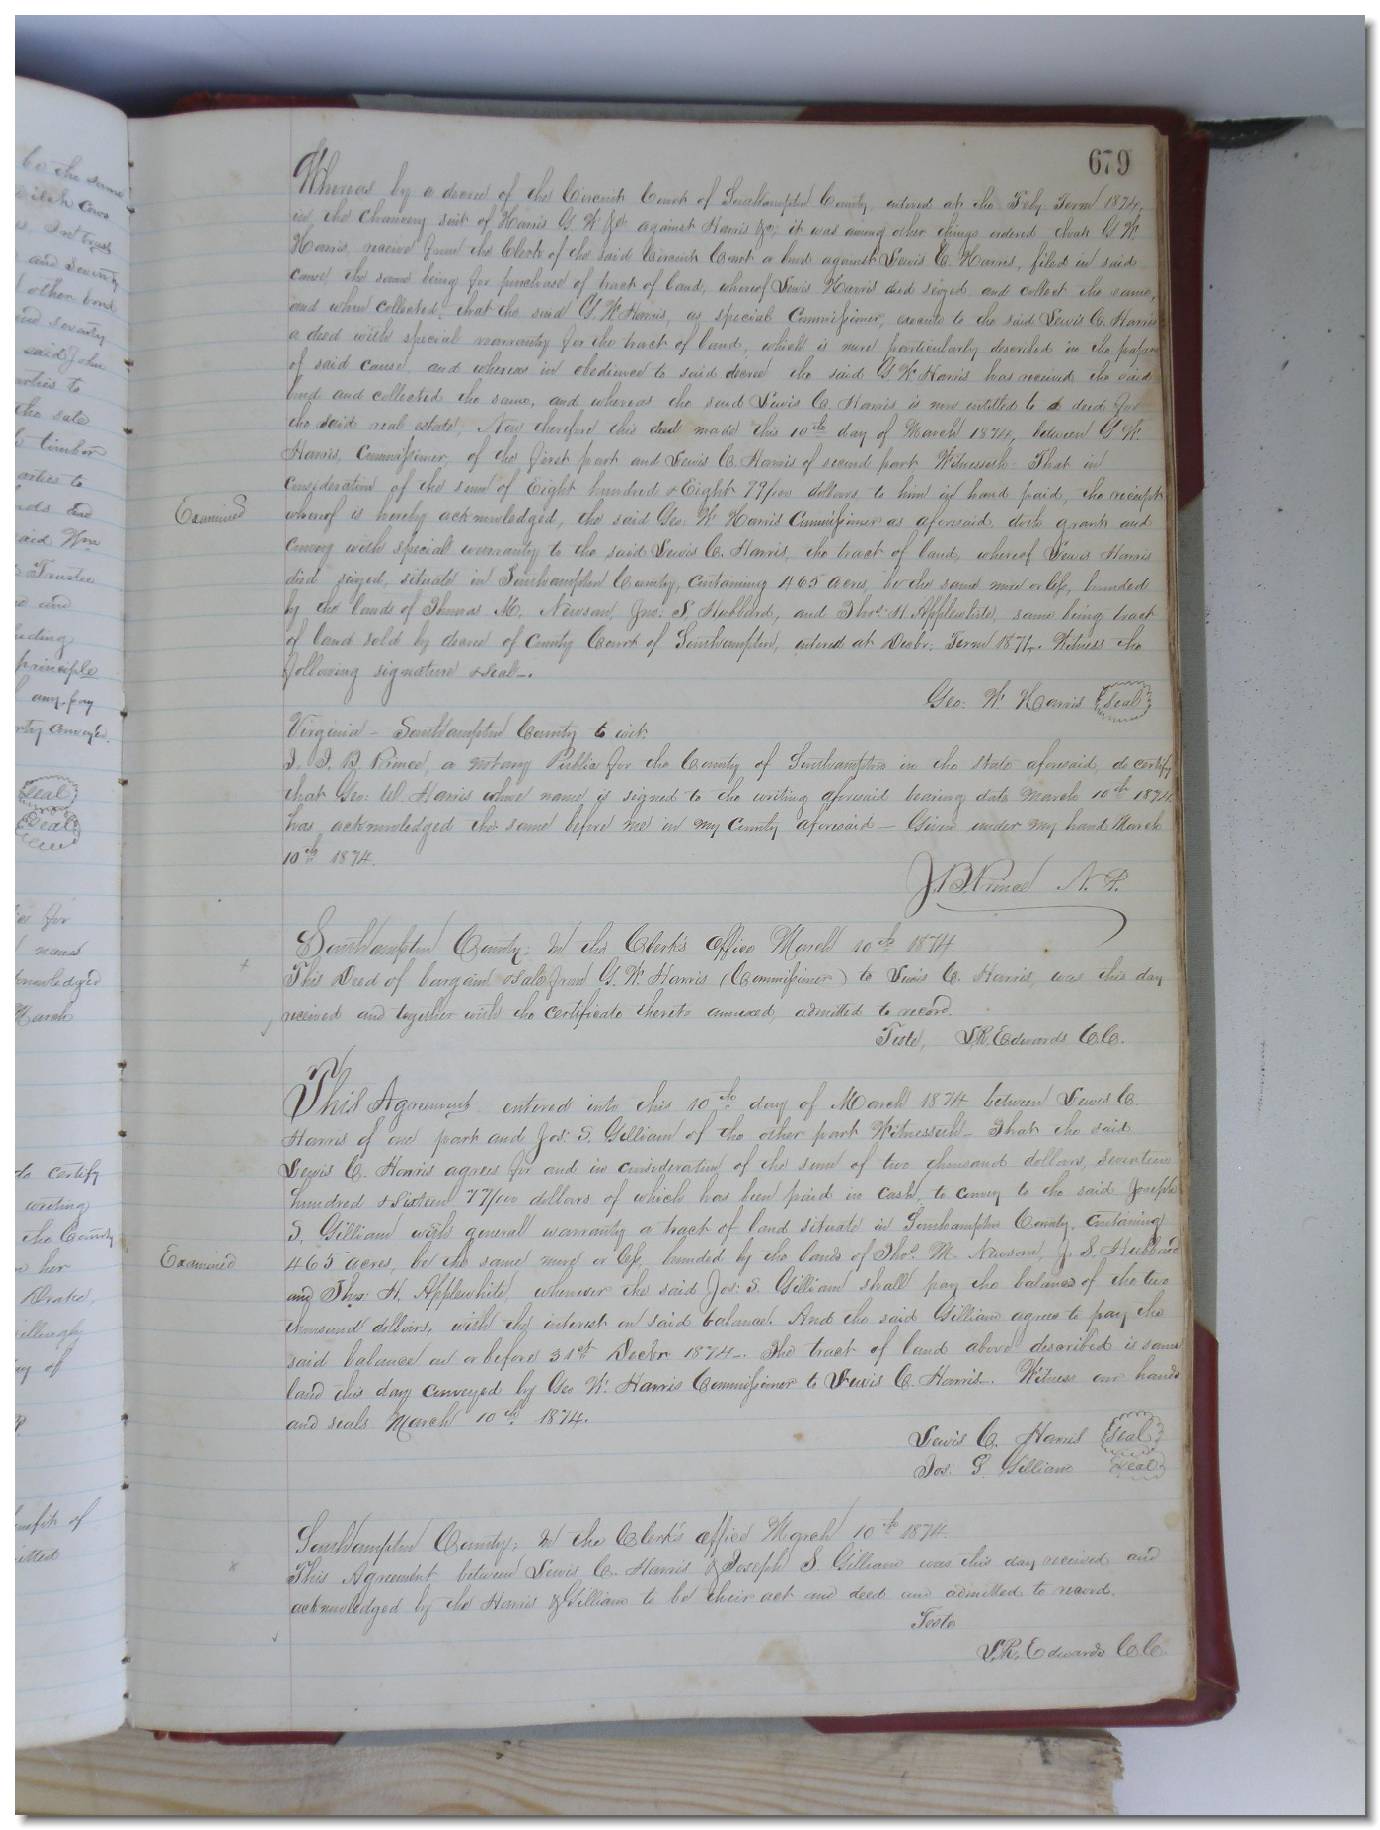 679
Whereas by a decree of the Circuit Court of Southampton County, entered at the Feby. Term 1874,
in the Chancery suit of Harris G. W. &c against Harris &c; it was among other things ordered that G. W.
Harris, receive from the Clerk of the said Circuit Court a bond against Lewis C. Harris, filed in said
cause, the same being for purchase of tract of land, whereof Lewis Harris died seized and collect the same,
and when collected, that the said G. W. Harris, as special Commissioner, execute to the said Lewis C. Harris
a deed with special warranty for the tract of land, which is more particularly described in the papers
of said cause, and whereas in obedience to said decree the said G. W. Harris has received the said
bond and collected the same, and whereas the said Lewis C. Harris is now entitled to a deed for
the said real estate, Now therefore this deed made this 10th day of March 1874, between G. W.
Harris, Commissioner, of the first part and Lewis C. Harris of second part Witnesseth: That in
consideration of the sum of Eight hundred & Eight 79/100 dollars to him in hand paid, the receipt
Examined
whereof is hereby acknowledged, the said Geo: W. Harris Commissioner as aforesaid, doth grant and
convey with special warranty to the said Lewis C. Harris, the tract of land, whereof Lewis Harris
died seized, situate in Southampton County, containing 465 acres, be the same more or less, bounded
by the lands of Thomas M. Newsom, Jno: S. Hubbard, and Thos. H. Applewhite, same being tract
of land sold by decree of County Court of Southampton, entered at Decbr. Term 1871. Witness the
following signature & seal—.
Geo: W. Harris Seal
Virginia — Southampton County to wit:
I. J. B. Prince, a notary Public for the County of Southampton in the State aforesaid, do certify
that Geo: W. Harris whose name is signed to the writing aforesaid bearing date March 10th 1874
has acknowledged the same before me in my County aforesaid — Given under my hand March
10th 1874.
J. B. Prince N. P.
Southampton County: In the Clerk's Office March 10th 1874
This Deed of bargain & sale from G. W. Harris (Commissioner) to Lewis C. Harris, was this day
received and together with the certificate thereto annexed, admitted to record.
Teste, L. R. Edwards C.C.
This Agreement entered into this 10th day of March 1874 between Lewis C.
Harris of one part and Jos: S. Gilliam of the other part Witnesseth— That the said
Lewis C. Harris agrees for and in consideration of the sum of two thousand dollars, seventeen
hundred & sixteen 77/100 dollars of which has been paid in cash, to convey to the said Joseph
S. Gilliam with general warranty a tract of land situate in Southampton County, containing
Examined
465 acres, be the same more or less, bounded by the lands of Thos. M. Newsom, J. S. Hubbard
and Thos: H. Applewhite, whenever the said Jos: S. Gilliam shall pay the balance of the two
thousand dollars, with the interest on said balance. And the said Gilliam agrees to pay the
said balance on or before 31st Decbr 1874—. The tract of land above described is same
land this day conveyed by Geo W. Harris Commissioner to Lewis C. Harris—. Witness our hands
and seals March 10th 1874.
Lewis C. Harris Seal
Jos. S. Gilliam Seal
Southampton County: In the Clerk's Office March 10th 1874
This Agreement between Lewis C. Harris & Joseph S. Gilliam was this day received and
acknowledged by the Harris & Gilliam to be their act and deed and admitted to record.
Teste
L. R. Edwards C.C.